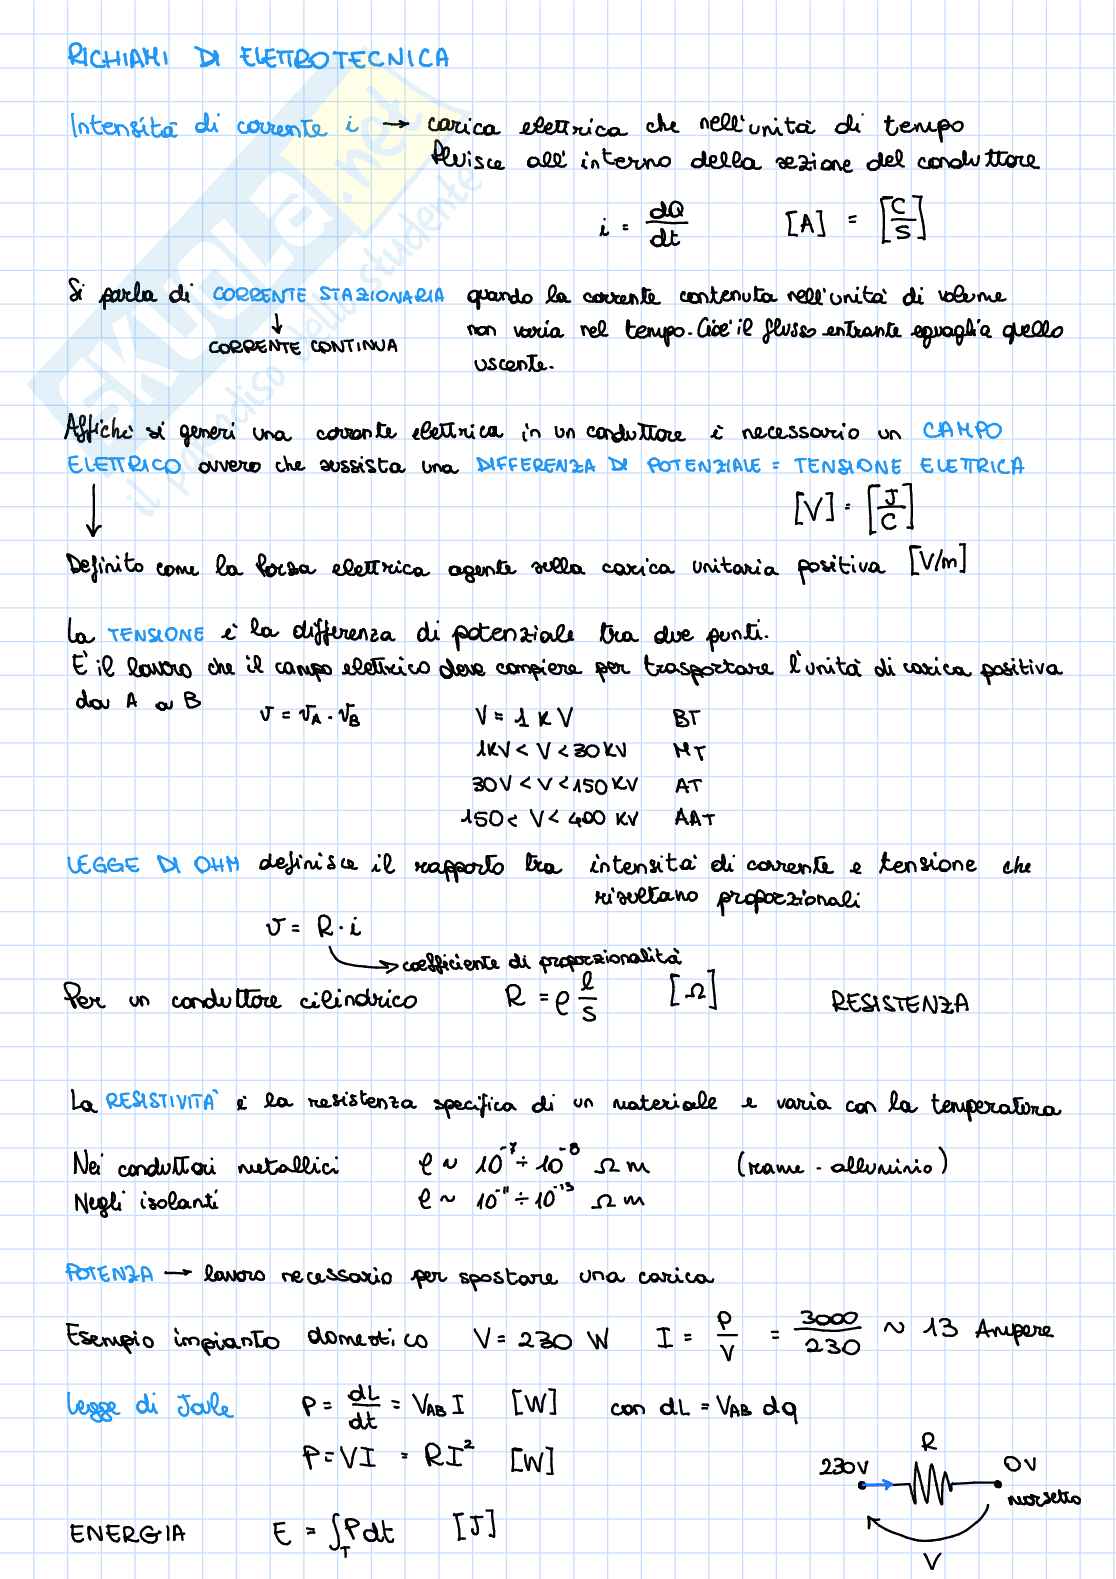 RICHIAMI DI ELETTROTECNICA
Intensità di corrente i → carica elettrica che nell'unità di tempo
fluisce all'interno della sezione del conduttore
i = dQ/dt [A] = [C/S]
Si parla di CORRENTE STAZIONARIA quando la corrente contenuta nell'unità di volume
↓ non varia nel tempo. Cioè il flusso entrante eguaglia quello
CORRENTE CONTINUA uscente.
Affiché si generi una corrente elettrica in un conduttore è necessario un CAMPO
ELETTRICO ovvero che sussista una DIFFERENZA DI POTENZIALE = TENSIONE ELETTRICA
↓ [V] = [J/C]
Definito come la forza elettrica agente sulla carica unitaria positiva [V/m]
La TENSIONE è la differenza di potenziale tra due punti.
E' il lavoro che il campo elettrico deve compiere per trasportare l'unità di carica positiva
da A a B
v = vA - vB V = 1 KV BT
1KV < V < 30 KV MT
30V < V < 150 KV AT
150 < V < 400 KV AAT
LEGGE DI OHM definisce il rapporto tra intensità di corrente e tensione che
risultano proporzionali
v = R · i
→ coefficiente di proporzionalità
Per un conduttore cilindrico R = ρ l/S [Ω] RESISTENZA
La RESISTIVITA' è la resistenza specifica di un materiale e varia con la temperatura
Nei conduttori metallici ρ ~ 10⁻⁷ ÷ 10⁻⁸ Ω m (rame - alluminio)
Negli isolanti ρ ~ 10⁻¹¹ ÷ 10⁻¹³ Ω m
POTENZA → lavoro necessario per spostare una carica
Esempio impianto domestico V = 230 W I = P/V = 3000/230 ~ 13 Ampere
Legge di Joule P = dL/dt = VAB I [W] con dL = VAB dq
P = VI = RI² [W]
R
230V 0V
morsetto
V
ENERGIA E = ∫T P dt [J]
SKUOLA.net
il paradiso dello studente